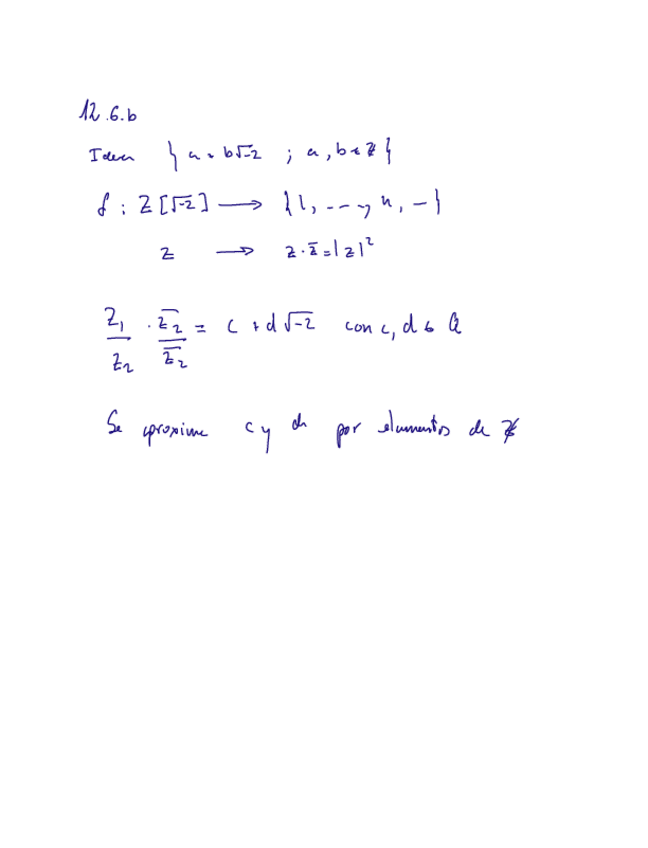 12.6.b
Idea { a + b√-2 ; a, b ∈ ℤ }
f : ℤ[√-2] ⟶ {1, ---, n, -}
z ⟶ z·z̄ = |z|²
z₁/z₂ · z̄₂/z̄₂ = c + d√-2 con c, d ∈ ℚ
Se aproxime c y d por elementos de ℤ